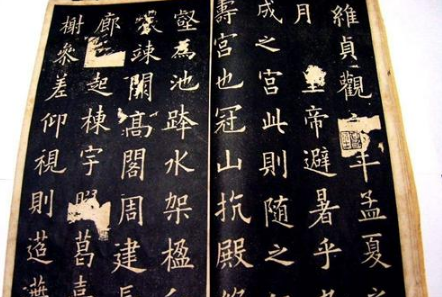 維貞觀年孟夏
月皇帝避暑乎
成之宮此則隨之
壽宮也冠山抗殿
壑為池跨水架楹
竦闕高閣周建長
廊起棟宇葛臺
榭參差仰視則迢